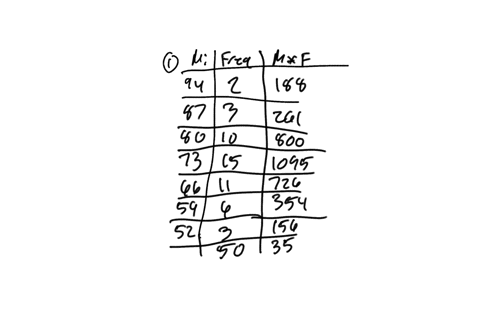 ① Mi Freq MxF
94 2 188
87 3 261
80 10 800
73 15 1095
66 11 726
59 6 354
52 3 156
50 35